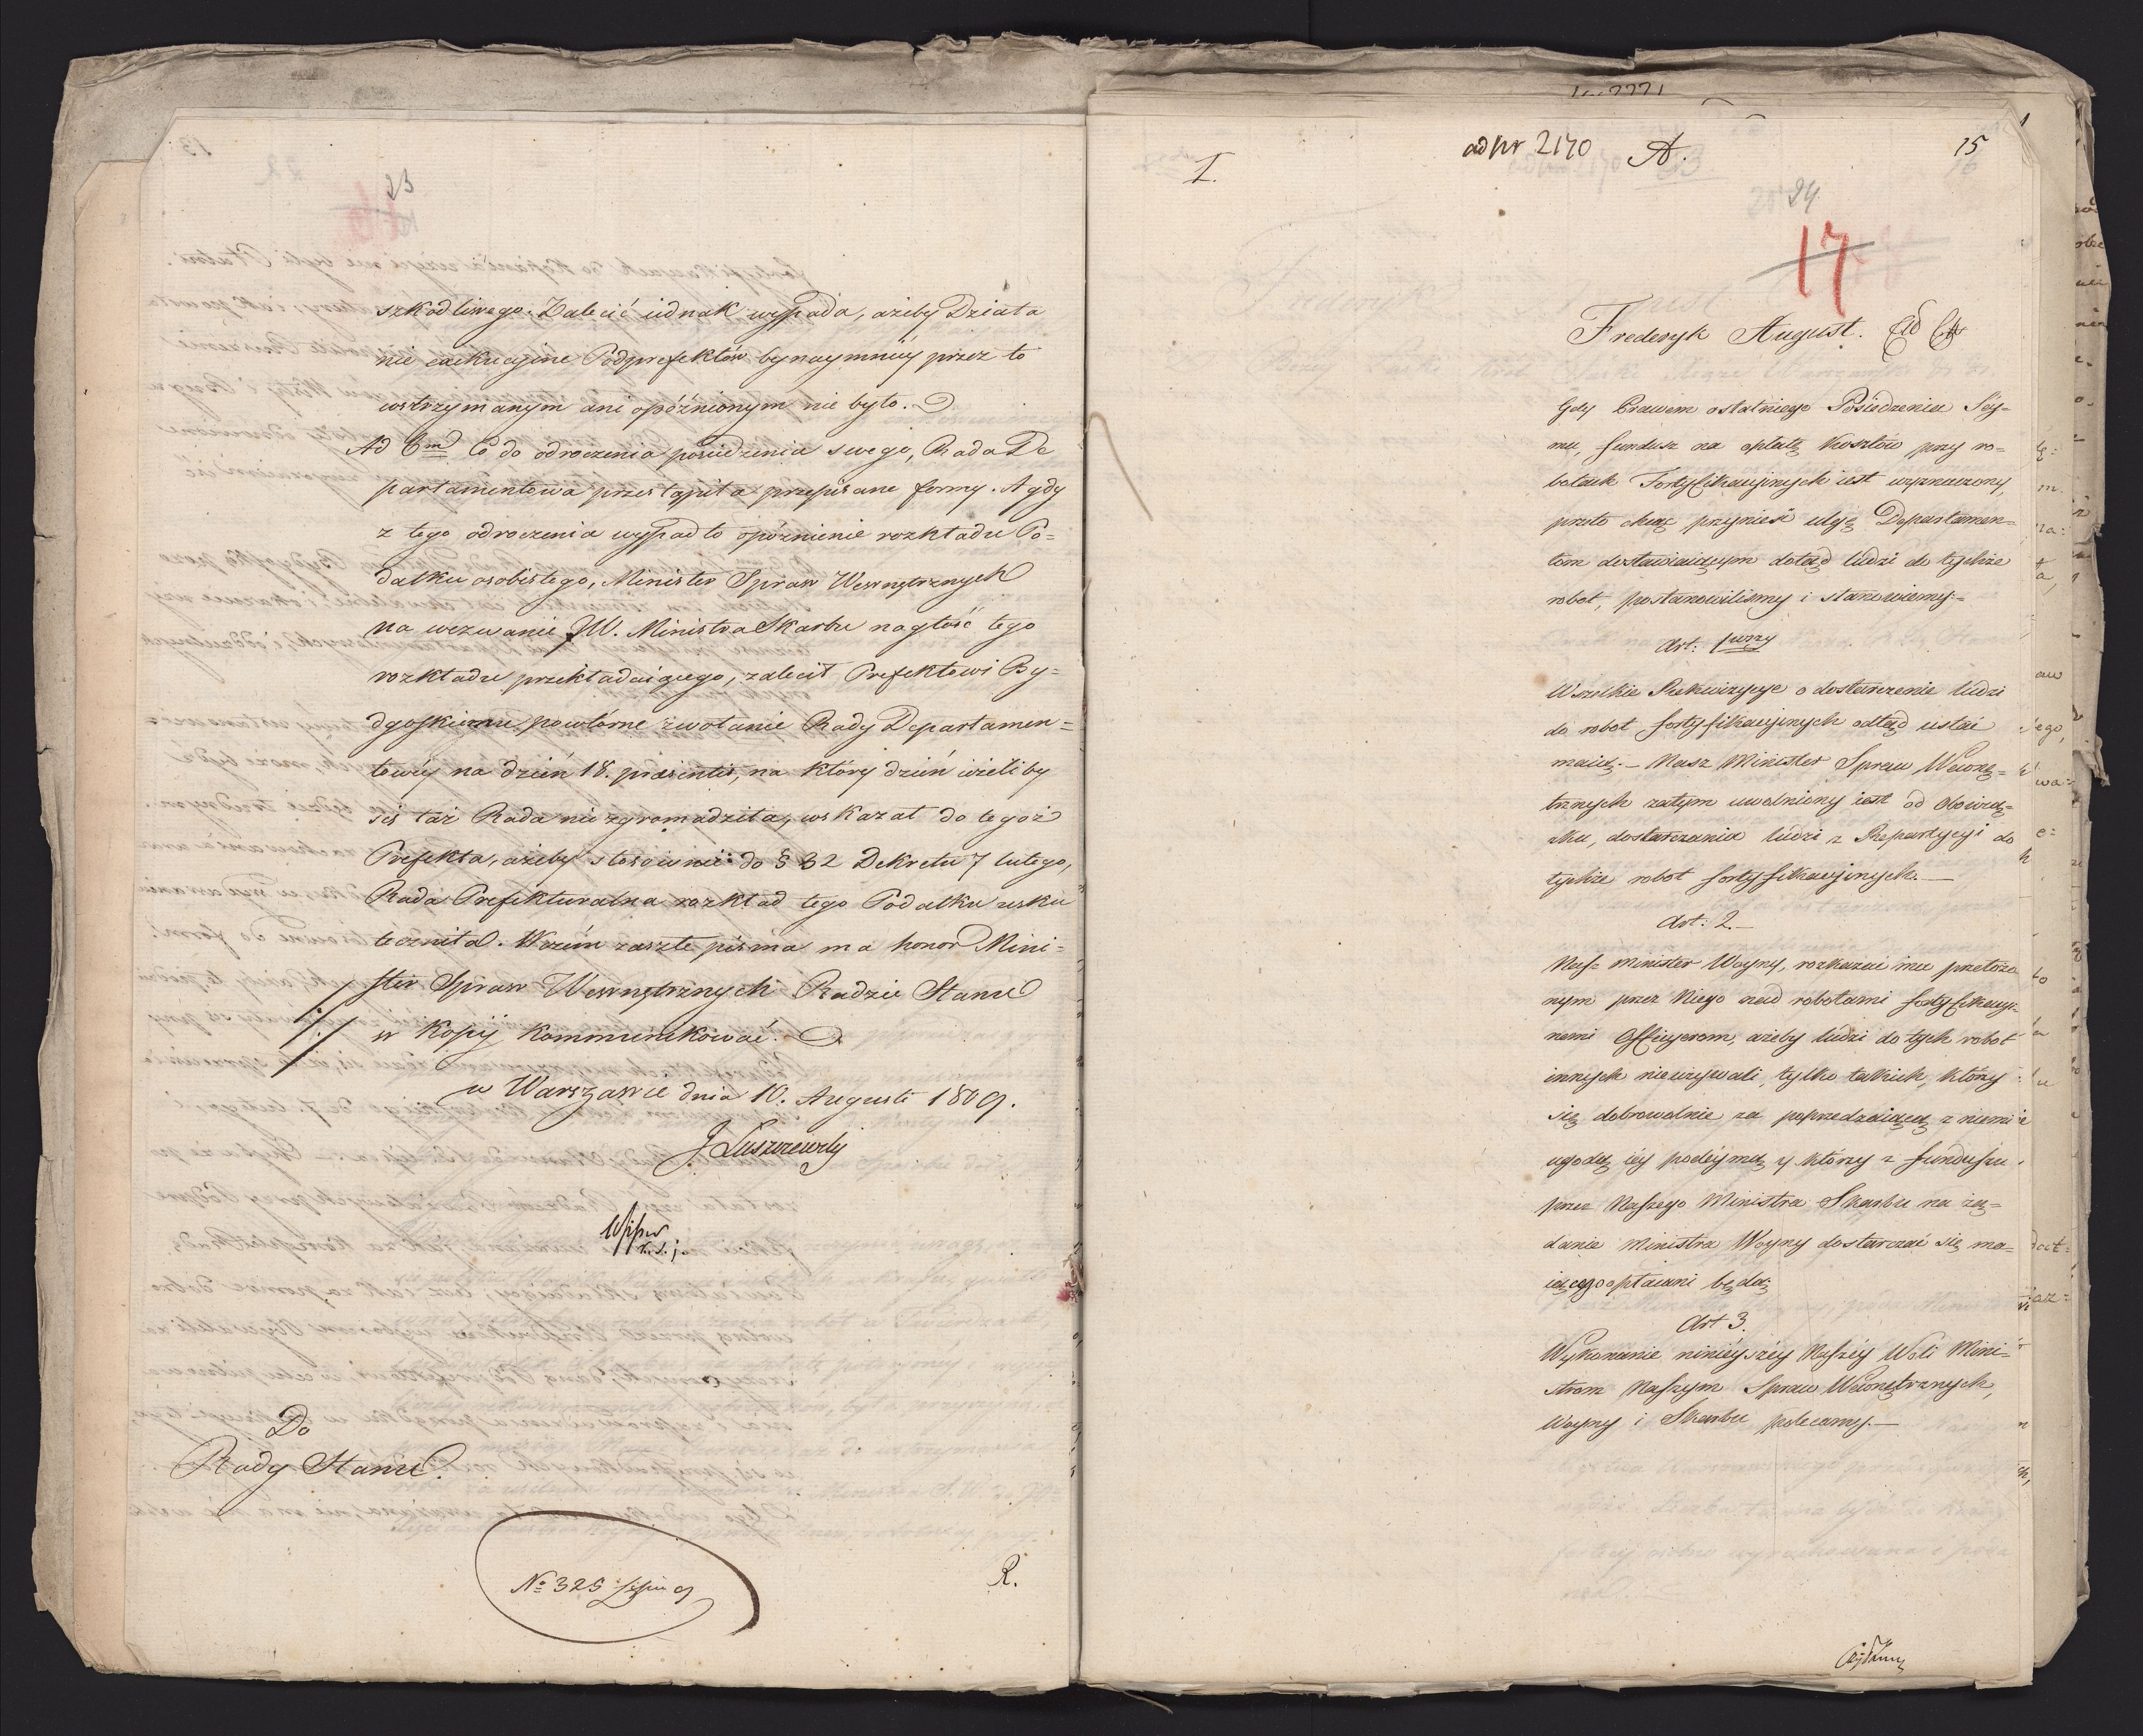 23
szkodliwego. Zalecić iednak wypada, ażeby Działa
nie exekucyine Podprefektów bynaymniéy przez to
wstrzymanym ani opóźnionym nie było.
Ad 6m Co do odroczenia posiedzenia swego, Rada De
partamentowa przestąpiła przepisane formy. A gdy
z tego odroczenia wypadło opóźnienie rozkładu Po=
datku osobistego, Minister Spraw Wewnętrznych
na wezwanie JW. Ministra Skarbu nagłość tego
rozkładu przekładaiącego, zalecił Prefektowi By=
dgoskiemu powtórne zwołanie Rady Departamen=
towéy na dzień 18. præsentis, na który dzień ieżeliby
się taż Rada nie zgromadziła, wskazał do tegoż
Prefekta, ażeby stosownie do § 32 Dekretu 7 lutego,
Rada Prefekturalna rozkład tego Podatku usku
teczniła. W czém zaszłe pisma ma honor Mini=
ster Spraw Wewnętrznych Radzie Stanu
w Kopij kommunikować.
w Warszawie dnia 10. Augusti 1809.
J Łuszczewsky
Do
Rady Stanu.
No 325
R.
I.
ad Nr 2170 A.
15
24
17
Fredesyk August.
Gdy Prawem ostatniego Posiedzenia Sey=
mu, fundusz na opłatę kosztów przy ro=
botach Fortyfikacyinych iest wyznaczony,
przeto chcąc przynieść ulgę Departamen=
tom dostawiaiącym dotąd ludzi do tychże
robot, postanowiliśmy i stanowiemy:=
Art: 1wszy
Wszelkie Rekwizycye o dostarczenie ludzi
do robot fortyfikacyinych odtąd ustać
maią. – Nasz Minister Spraw Wewnę=
trznych zatym uwolniony iest od obowią=
zku, dostarczania ludzi z Repartycyi do
tychże robot fortyfikacyinych. —
Art: 2. –
Nasz Minister Woyny, rozkazać ma przełożo
nym przez Niego nad robotami fortyfikacyi=
nemi Officyerom, ażeby ludzi do tych robot
innych nieużywali, tylko takich, którzy
się dobrowolnie za poprzedzaiącą z niemi
ugodą iéy podeymą y którzy z funduszu
przez Naszego Ministra Skarbu na żą=
danie Ministra Woyny dostarczać się ma=
iącego opłacani będą.
Art 3.
Wykonanie ninieyszéy Naszéy Woli Mini=
strom Naszym Spraw Wewnętrznych,
Woyny i Skarbu polecamy. —